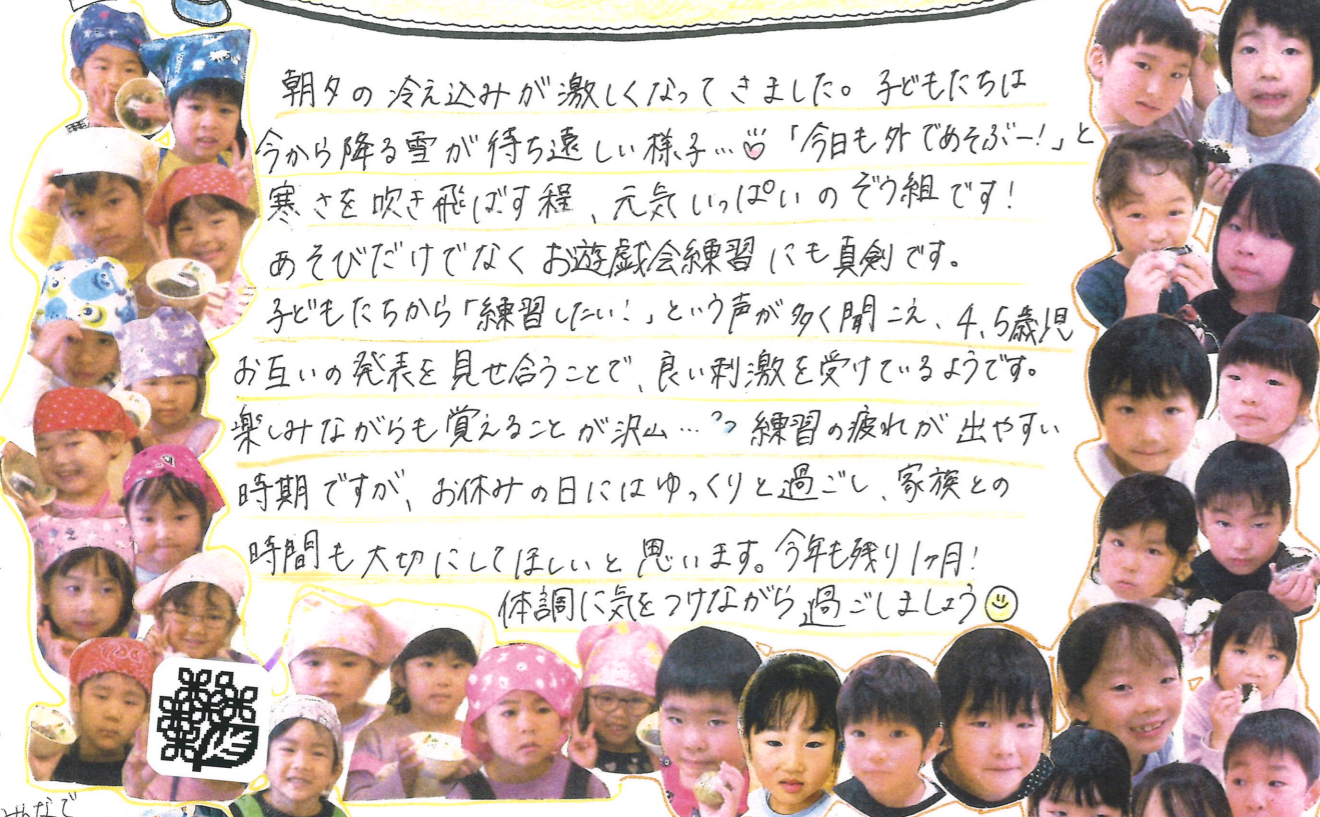 朝夕の冷え込みが激しくなってきました。子どもたちは
今から降る雪が待ち遠しい様子…「今日も外であそぶー!」と
寒さを吹き飛ばす程、元気いっぱいのぞう組です!
あそびだけでなくお遊戯会練習にも真剣です。
子どもたちから「練習したい!」という声が多く聞こえ、4、5歳児
お互いの発表を見せ合うことで、良い刺激を受けているようです。
楽しみながらも覚えることが沢山…練習の疲れが出やすい
時期ですが、お休みの日にはゆっくりと過ごし、家族との
時間も大切にしてほしいと思います。今年も残り1ヶ月!
体調に気をつけながら過ごしましょう
みんなで